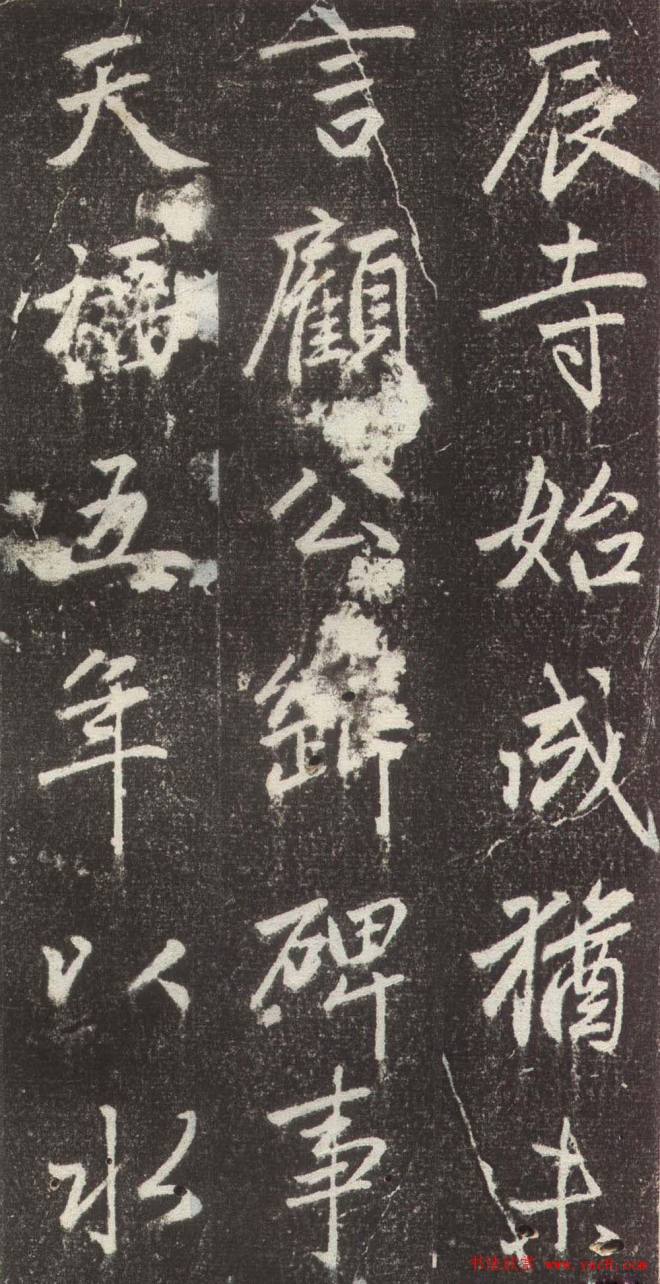 辰寺始成猶未
言顧公斷碑事
天五年以水
书法欣赏 www.yac8.com